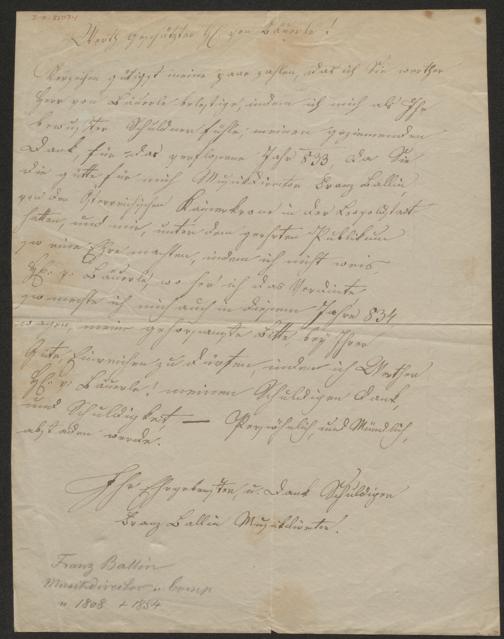 Werth geschätzter H. von Bäuerle!
Verzeihen gütigst meine paar Zahlen, das ich Sie werther
Herr von Bäuerle belestige, indem ich mich als Ihr
bewuster Schuldner fühle, meinen geziemenden
Dank, für das verflossene Jahr 833 da Sie
die gütte für mich Musikdirector Franz Ballin
von der Österreichischen Kaiserkrone in der Leopoldstadt
hatten, und mir, unter dem geehrten Publikum
so eine Ehre machten, indem ich nicht weis
H: v: Bäuerle, wo her ich das Verdinte
so mechte ich mich auch in diesem Jahre 834
wagen, meine gehorsamste Bitte bey Ihrer
Güte, Einreichen zu dürfen, indem ich Werthen
H: v: Bäuerle! meinen Schuldigen Dank,
und Schuldigkeit — Persöhnlich, und Mündlich,
abstaden werde.
Ihr Ehrgebensten, u. Dank Schuldigen
Franz Ballin Musikdirector.
Franz Ballin
Musikdirector u. Comp
n. 1808 + 1854